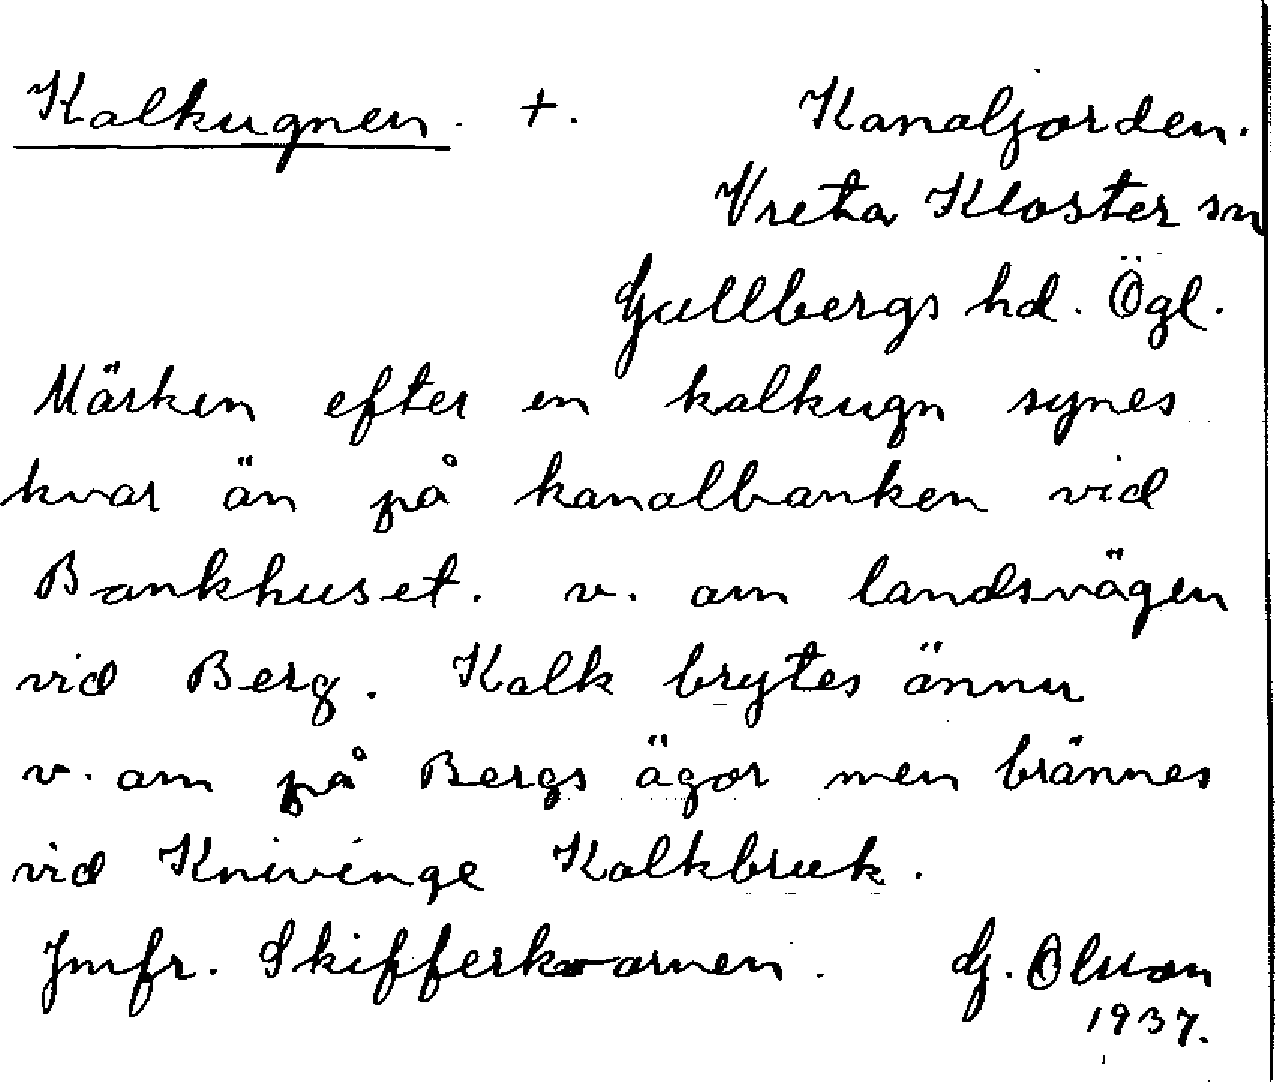 Kalkugnen. +. Kanaljorden.
Vreta Kloster sn
Gullbergs hd. Ögl.
Märken efter en kalkugn synes
kvar än på kanalbanken vid
Bankhuset. v. om landsvägen
vid Berg. Kalk brytes ännu
v. om på Bergs ägor men brännes
vid Knivinge Kalkbruk.
Jmfr. Skifferkvarnen. G. Olsson
1937.